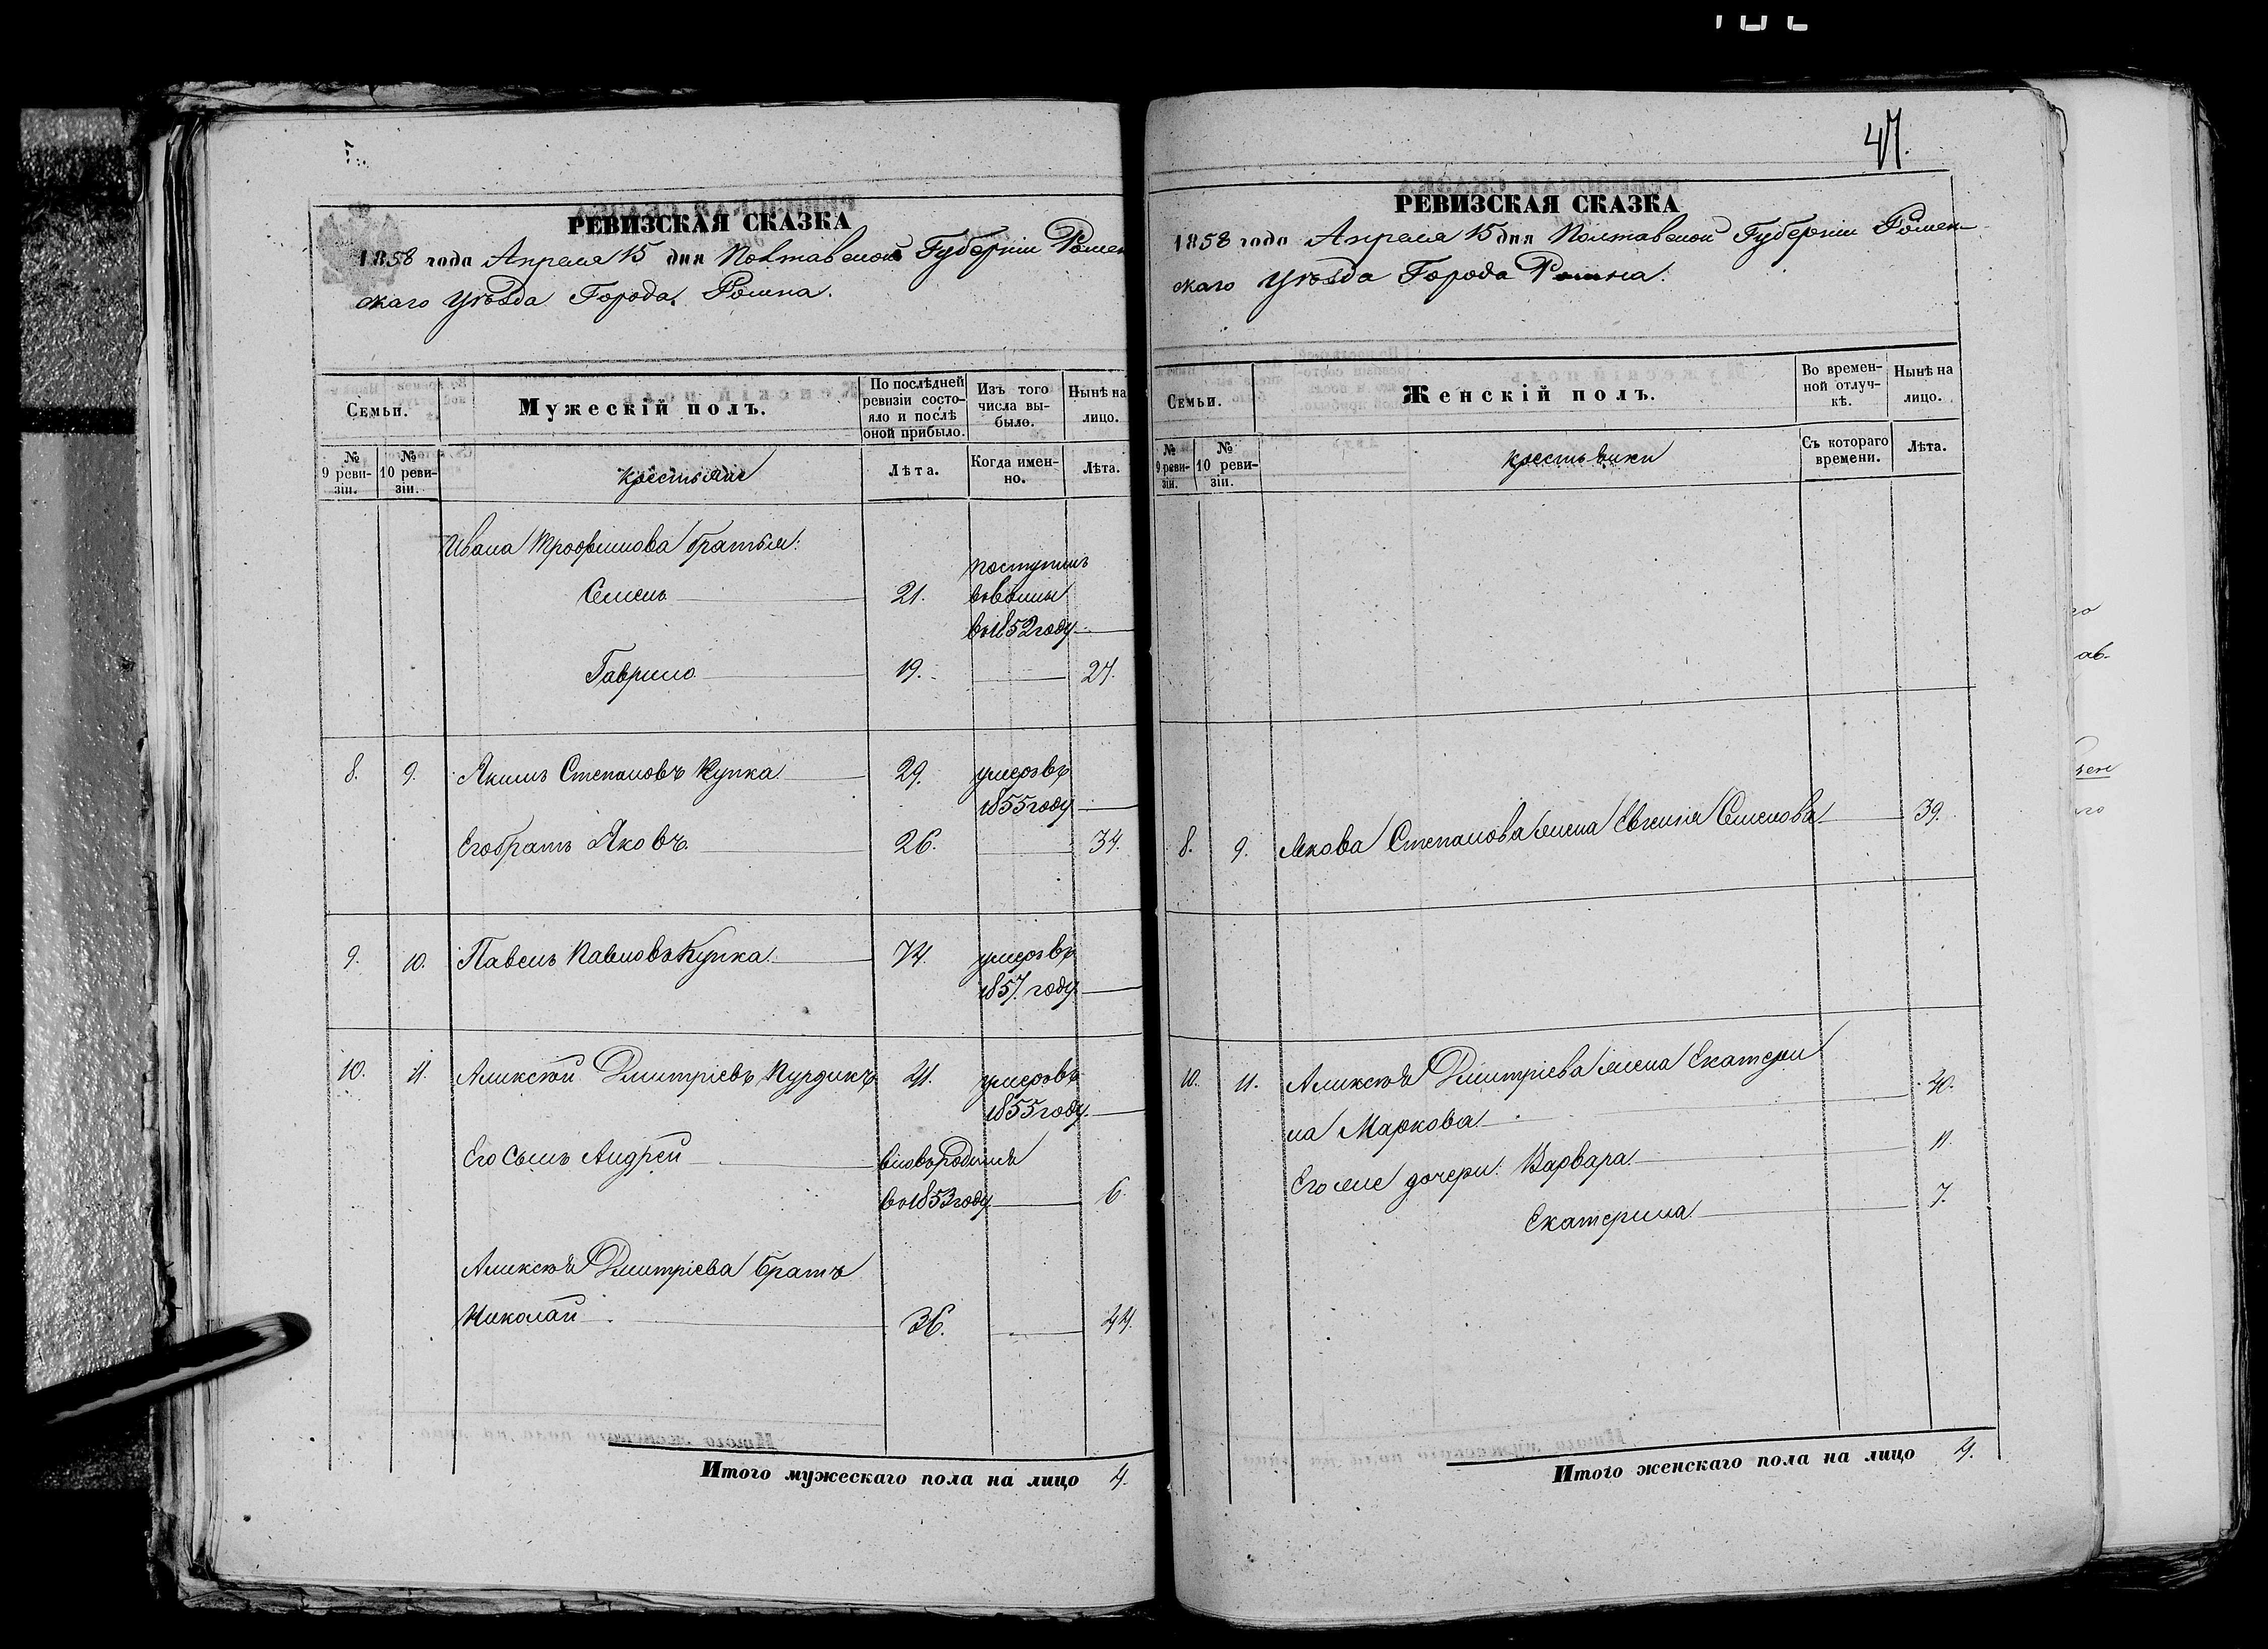 47.
РЕВИЗСКАЯ СКАЗКА
1858 года Апреля 15 дня Полтавской Губерніи Ромен
скаго Уѣзда Города Ромна.
Семьи.
Мужескій полъ.
По послѣдней ревизіи состояло и послѣ оной прибыло.
Изъ того числа выбыло.
Нынѣ на лицо.
№ 9 ревизіи.
№ 10 ревизіи.
крестьяне
Лѣта.
Когда именно.
Лѣта.
Ивана Трофимова братья:
Семенъ 21. поступилъ
въ
въ 1852 году
Гаврило 19. 27.
8. 9. Якимъ Степановъ Купка 29. умеръ въ
1855 году
Его братъ Яковъ 26. 34.
9. 10. Павелъ Павловъ Купка 74. умеръ въ
1857 году
10. 11. Алексѣй Дмитріевъ Курдикъ 41. умеръ въ
1855 году
Его Сынъ Андрей вновь родился
въ 1853 году 6.
Алексѣя Дмитріева братъ
Николай 36. 44.
Итого мужескаго пола на лицо 4.
РЕВИЗСКАЯ СКАЗКА
1858 года Апреля 15 дня Полтавской Губерніи Ромен-
скаго Уѣзда Города Ромна.
Семьи.
Женскій полъ.
Во временной отлучкѣ.
Нынѣ на лицо.
№ 9 ревизіи.
№ 10 ревизіи.
крестьянки
Съ котораго времени.
Лѣта.
8. 9. Якова Степанова жена Евгенія Семенова 39.
10. 11. Алексѣя Дмитріева жена Екатери
на Маркова 40.
Его же дочери: Варвара 11.
Екатерина 7.
Итого женскаго пола на лицо 4.